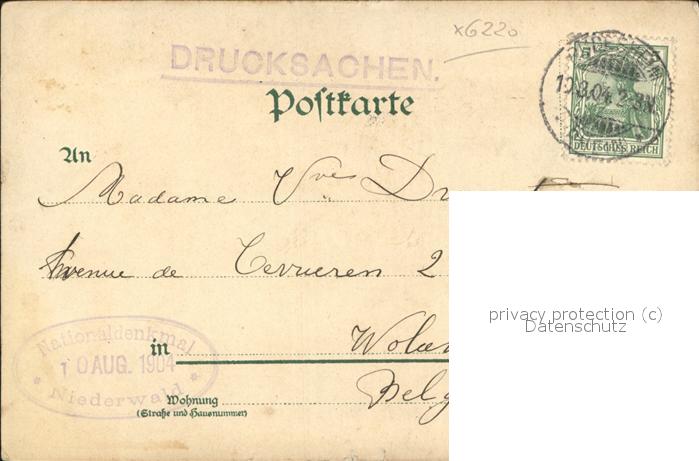 x6220
DRUCKSACHEN.
10.8.04. 2-3N.
DEUTSCHES REICH
Postkarte
An
Madame Vve
Avenue de Tervueren 2
privacy protection (c)
Datenschutz
Nationaldenkmal
10 AUG. 1904
Niederwald
in
Wohnung
(Straße und Hausnummer)